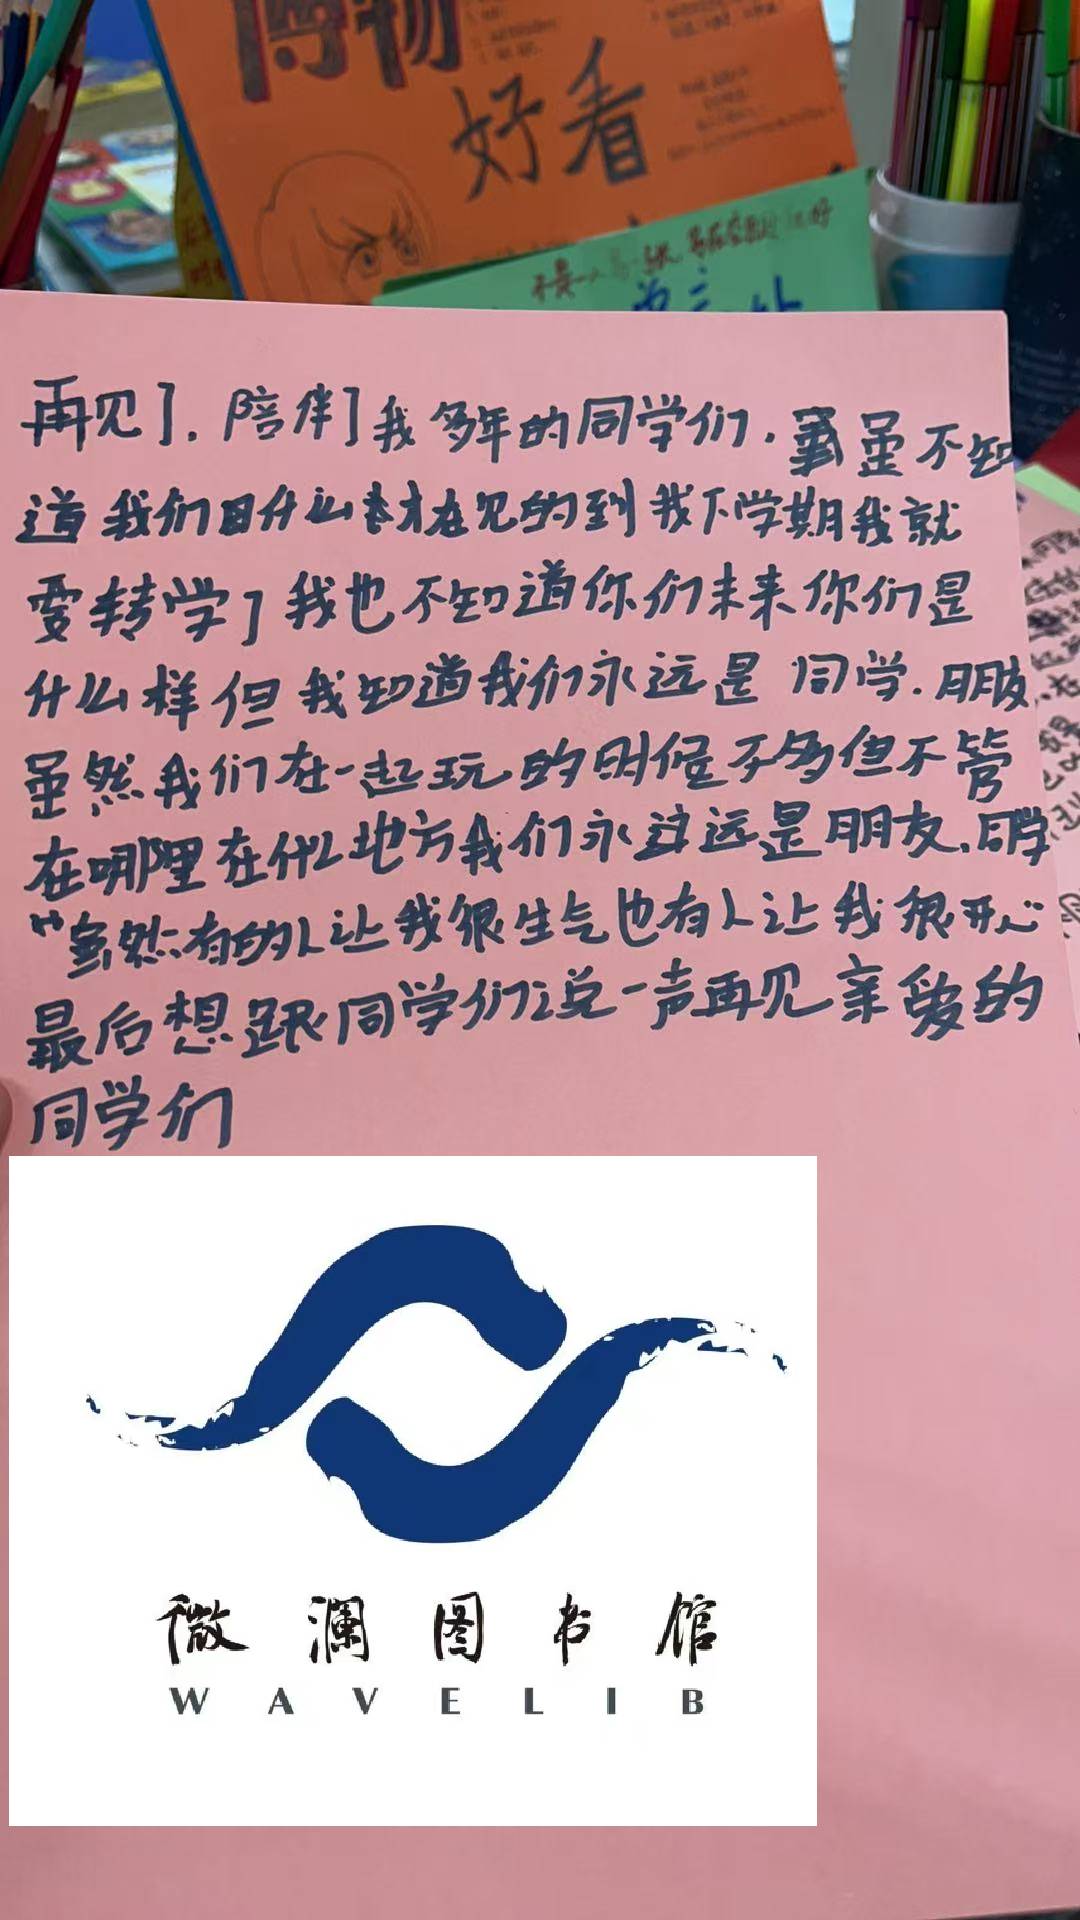 博物
好看
不是一
再见了．陪伴了我多年的同学们．虽不知
道我们日什么才在见的到我下学期我就
要转学了我也不知道你们未来你们是
什么样但我知道我们永远是 同学．朋友
虽然我们在一起玩的时候不多但不管
在哪里在什么地方我们永过远是朋友．同学
"虽然有的人让我很生气也有人让我很开心
最后想跟同学们说一声再见亲爱的
同学们
微澜图书馆
WAVELIB